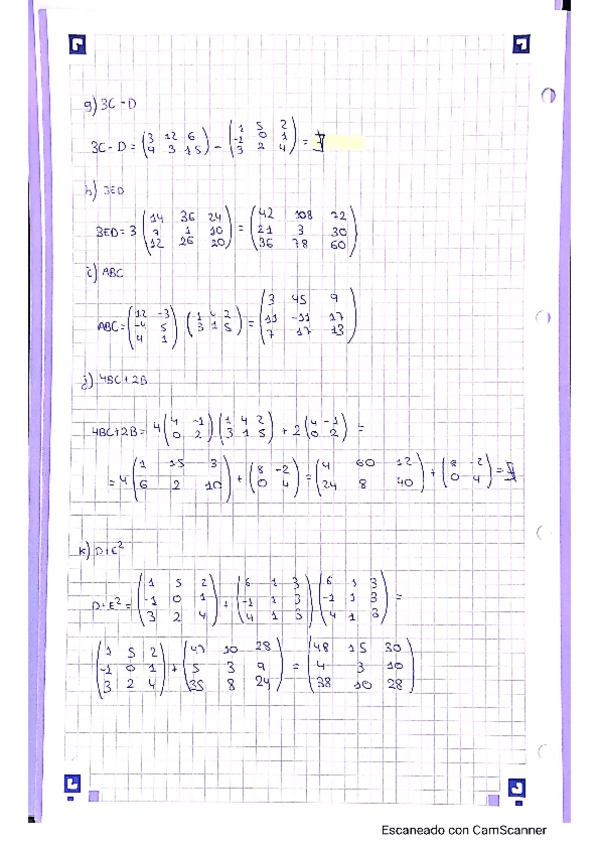 g) 3C - D
3C - D = (3 12 6 / 9 3 15) - (1 5 2 / -1 0 1 / 3 2 4) = ∄
h) 3ED
3ED = 3 (14 36 24 / 7 1 10 / 12 26 20) = (42 108 72 / 21 3 30 / 36 78 60)
i) ABC
ABC = (12 -3 / -4 5 / 4 1) (1 4 2 / 3 1 5) = (3 45 9 / 11 -11 17 / 7 17 13)
j) 4BC + 2B
4BC + 2B = 4 (4 -1 / 0 2) (1 4 2 / 3 1 5) + 2 (4 -1 / 0 2) =
= 4 (1 15 3 / 6 2 10) + (8 -2 / 0 4) = (4 60 12 / 24 8 40) + (8 -2 / 0 4) = ∄
k) D + E²
D + E² = (1 5 2 / -1 0 1 / 3 2 4) + (6 1 3 / -1 1 3 / 4 1 3) (6 1 3 / -1 1 3 / 4 1 3) =
(1 5 2 / -1 0 1 / 3 2 4) + (47 10 28 / 5 3 9 / 35 8 24) = (48 15 30 / 4 3 10 / 38 10 28)
Escaneado con CamScanner